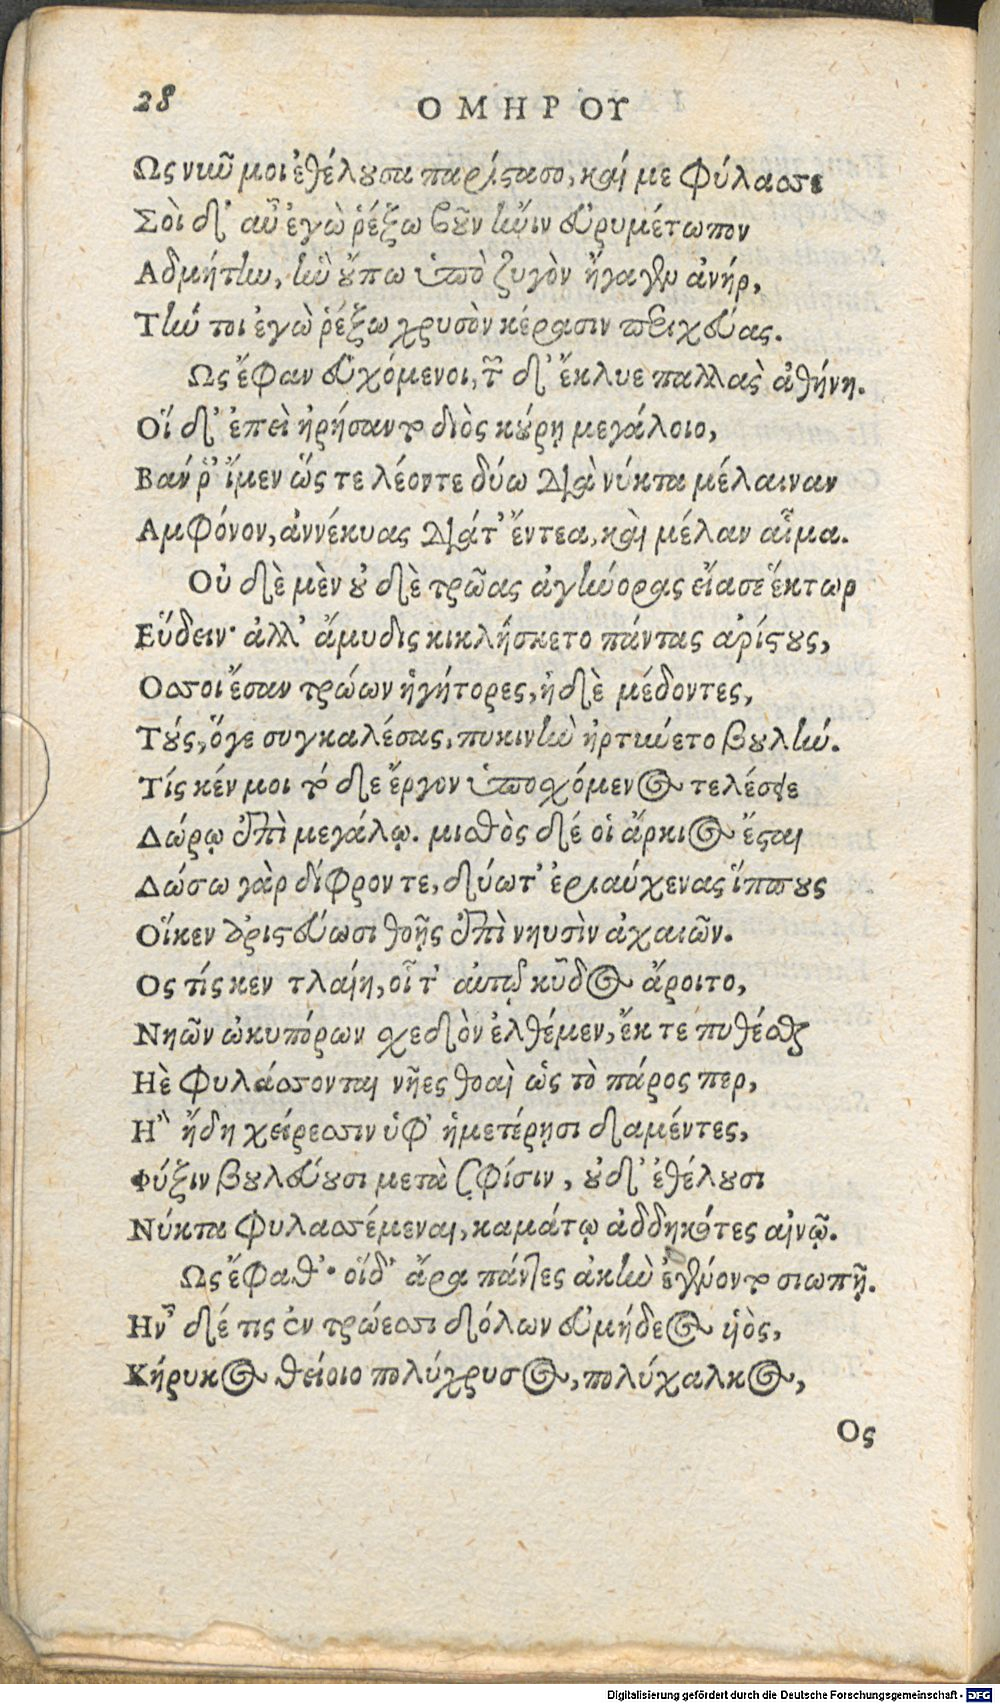 28 ΟΜΗΡΟΥ
Ως νῦν μοι ἐθέλουσα παρίστασο, καί με φύλασσε
Σοὶ δ' αὖ ἐγὼ ῥέξω βοῦν ἦνιν εὐρυμέτωπον
Αδμήτην, ἣν οὔπω ὑπὸ ζυγὸν ἤγαγεν ἀνήρ,
Τήν τοι ἐγὼ ῥέξω χρυσὸν κέρασιν περιχεύας.
Ως ἔφαν εὐχόμενοι, τῶν δ' ἔκλυε παλλὰς ἀθήνη.
Οἵ δ' ἐπεὶ ἠρήσαντο διὸς κούρῃ μεγάλοιο,
Βαν ῥ' ἴμεν ὥς τε λέοντε δύω διὰ νύκτα μέλαιναν
Αμφόνον, ἀννέκυας διάτ' ἔντεα, καὶ μέλαν αἷμα.
Οὐ δὲ μὲν οὐ δὲ τρῶας ἀγήνορας εἴασε ἕκτωρ
Εὕδειν· ἀλλ' ἄμυδις κικλήσκετο πάντας ἀρίστους,
Οσσοι ἔσαν τρώων ἡγήτορες, ἠδὲ μέδοντες,
Τούς, ὅγε συγκαλέσας, πυκινὴν ἠρτύνετο βουλήν.
Τίς κέν μοι τό δε ἔργον ὑποσχόμενος τελέσειε
Δώρῳ ἐπὶ μεγάλῳ. μισθὸς δέ οἱ ἄρκιος ἔσται
Δώσω γὰρ δίφρον τε, δύωτ' ἐριαύχενας ἵππους
Οἵκεν ἀριστεύωσι θοῇς ἐπὶ νηυσὶν ἀχαιῶν.
Ος τίς κεν τλαίη, οἷ τ' αὐτῷ κῦδος ἄροιτο,
Νηῶν ὠκυπόρων σχεδὸν ἐλθέμεν, ἔκ τε πυθέσθαι
Ηὲ φυλάσσονται νῆες θοαὶ ὡς τὸ πάρος περ,
Η῍ ἤδη χείρεσσιν ὑφ' ἡμετέρῃσι δαμέντες,
Φύξιν βουλεύουσι μετὰ σφίσιν, οὐδ' ἐθέλουσι
Νύκτα φυλασσέμεναι, καμάτῳ ἀδδηκότες αἰνῷ.
Ως ἔφαθ'· οἵδ' ἄρα πάντες ἀκὴν ἐγένοντο σιωπῇ.
Ην῏ δέ τις ἐν τρώεσσι δόλων εὐμήδεος υἱὸς,
Κήρυκος θείοιο πολύχρυσος, πολύχαλκος,
Ος
Digitalisierung gefördert durch die Deutsche Forschungsgemeinschaft - DFG